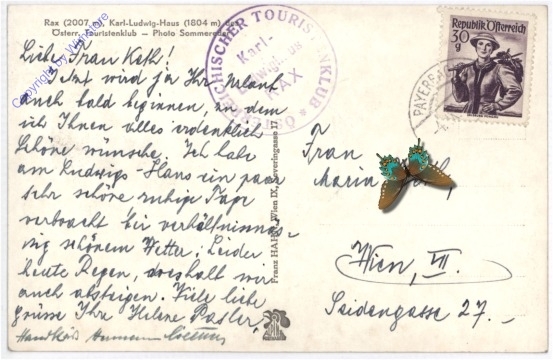 Rax (2007 m) Karl-Ludwig-Haus (1804 m) des
Österr. Touristenklub — Photo Sommer
Copyright by
ÖSTERREICHISCHER TOURISTENKLUB
Karl-
Ludwig Haus
RAX
Republik Österreich
30
g
PAYERBACH
Liebe Frau Koth!
Jetzt wird ja Ihr Urlaub
auch bald beginnen, zu dem
ich Ihnen alles erdenklich
Schöne wünsche. Ich habe
am Ludwigs-Haus ein paar
sehr schöne ruhige Tage
verbracht bei verhältnismäs-
sig schönem Wetter; Leider
heute Regen, deshalb wir
auch absteigen. Viele liebe
Grüsse Ihre Helene Pasler,
Handkuß Hermann
Franz HAHN, Wien IX, Severingasse 17
Frau
Maria
Wien, VII.
Seidengasse 27.—